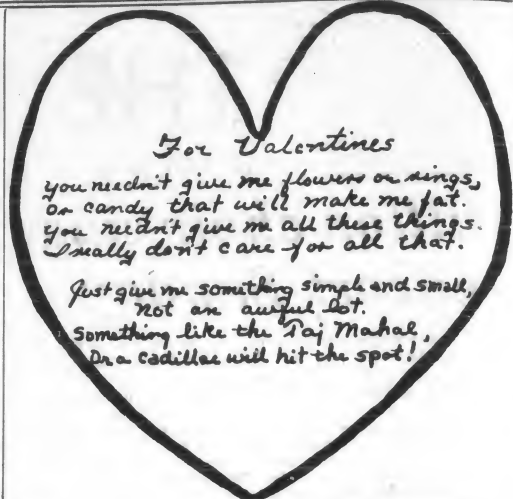 For Valentines
You needn't give me flowers or rings,
or candy that will make me fat.
You needn't give me all these things.
I really don't care for all that.
Just give me something simple and small,
not an awful lot.
Something like the Taj Mahal,
Or a Cadillac will hit the spot!